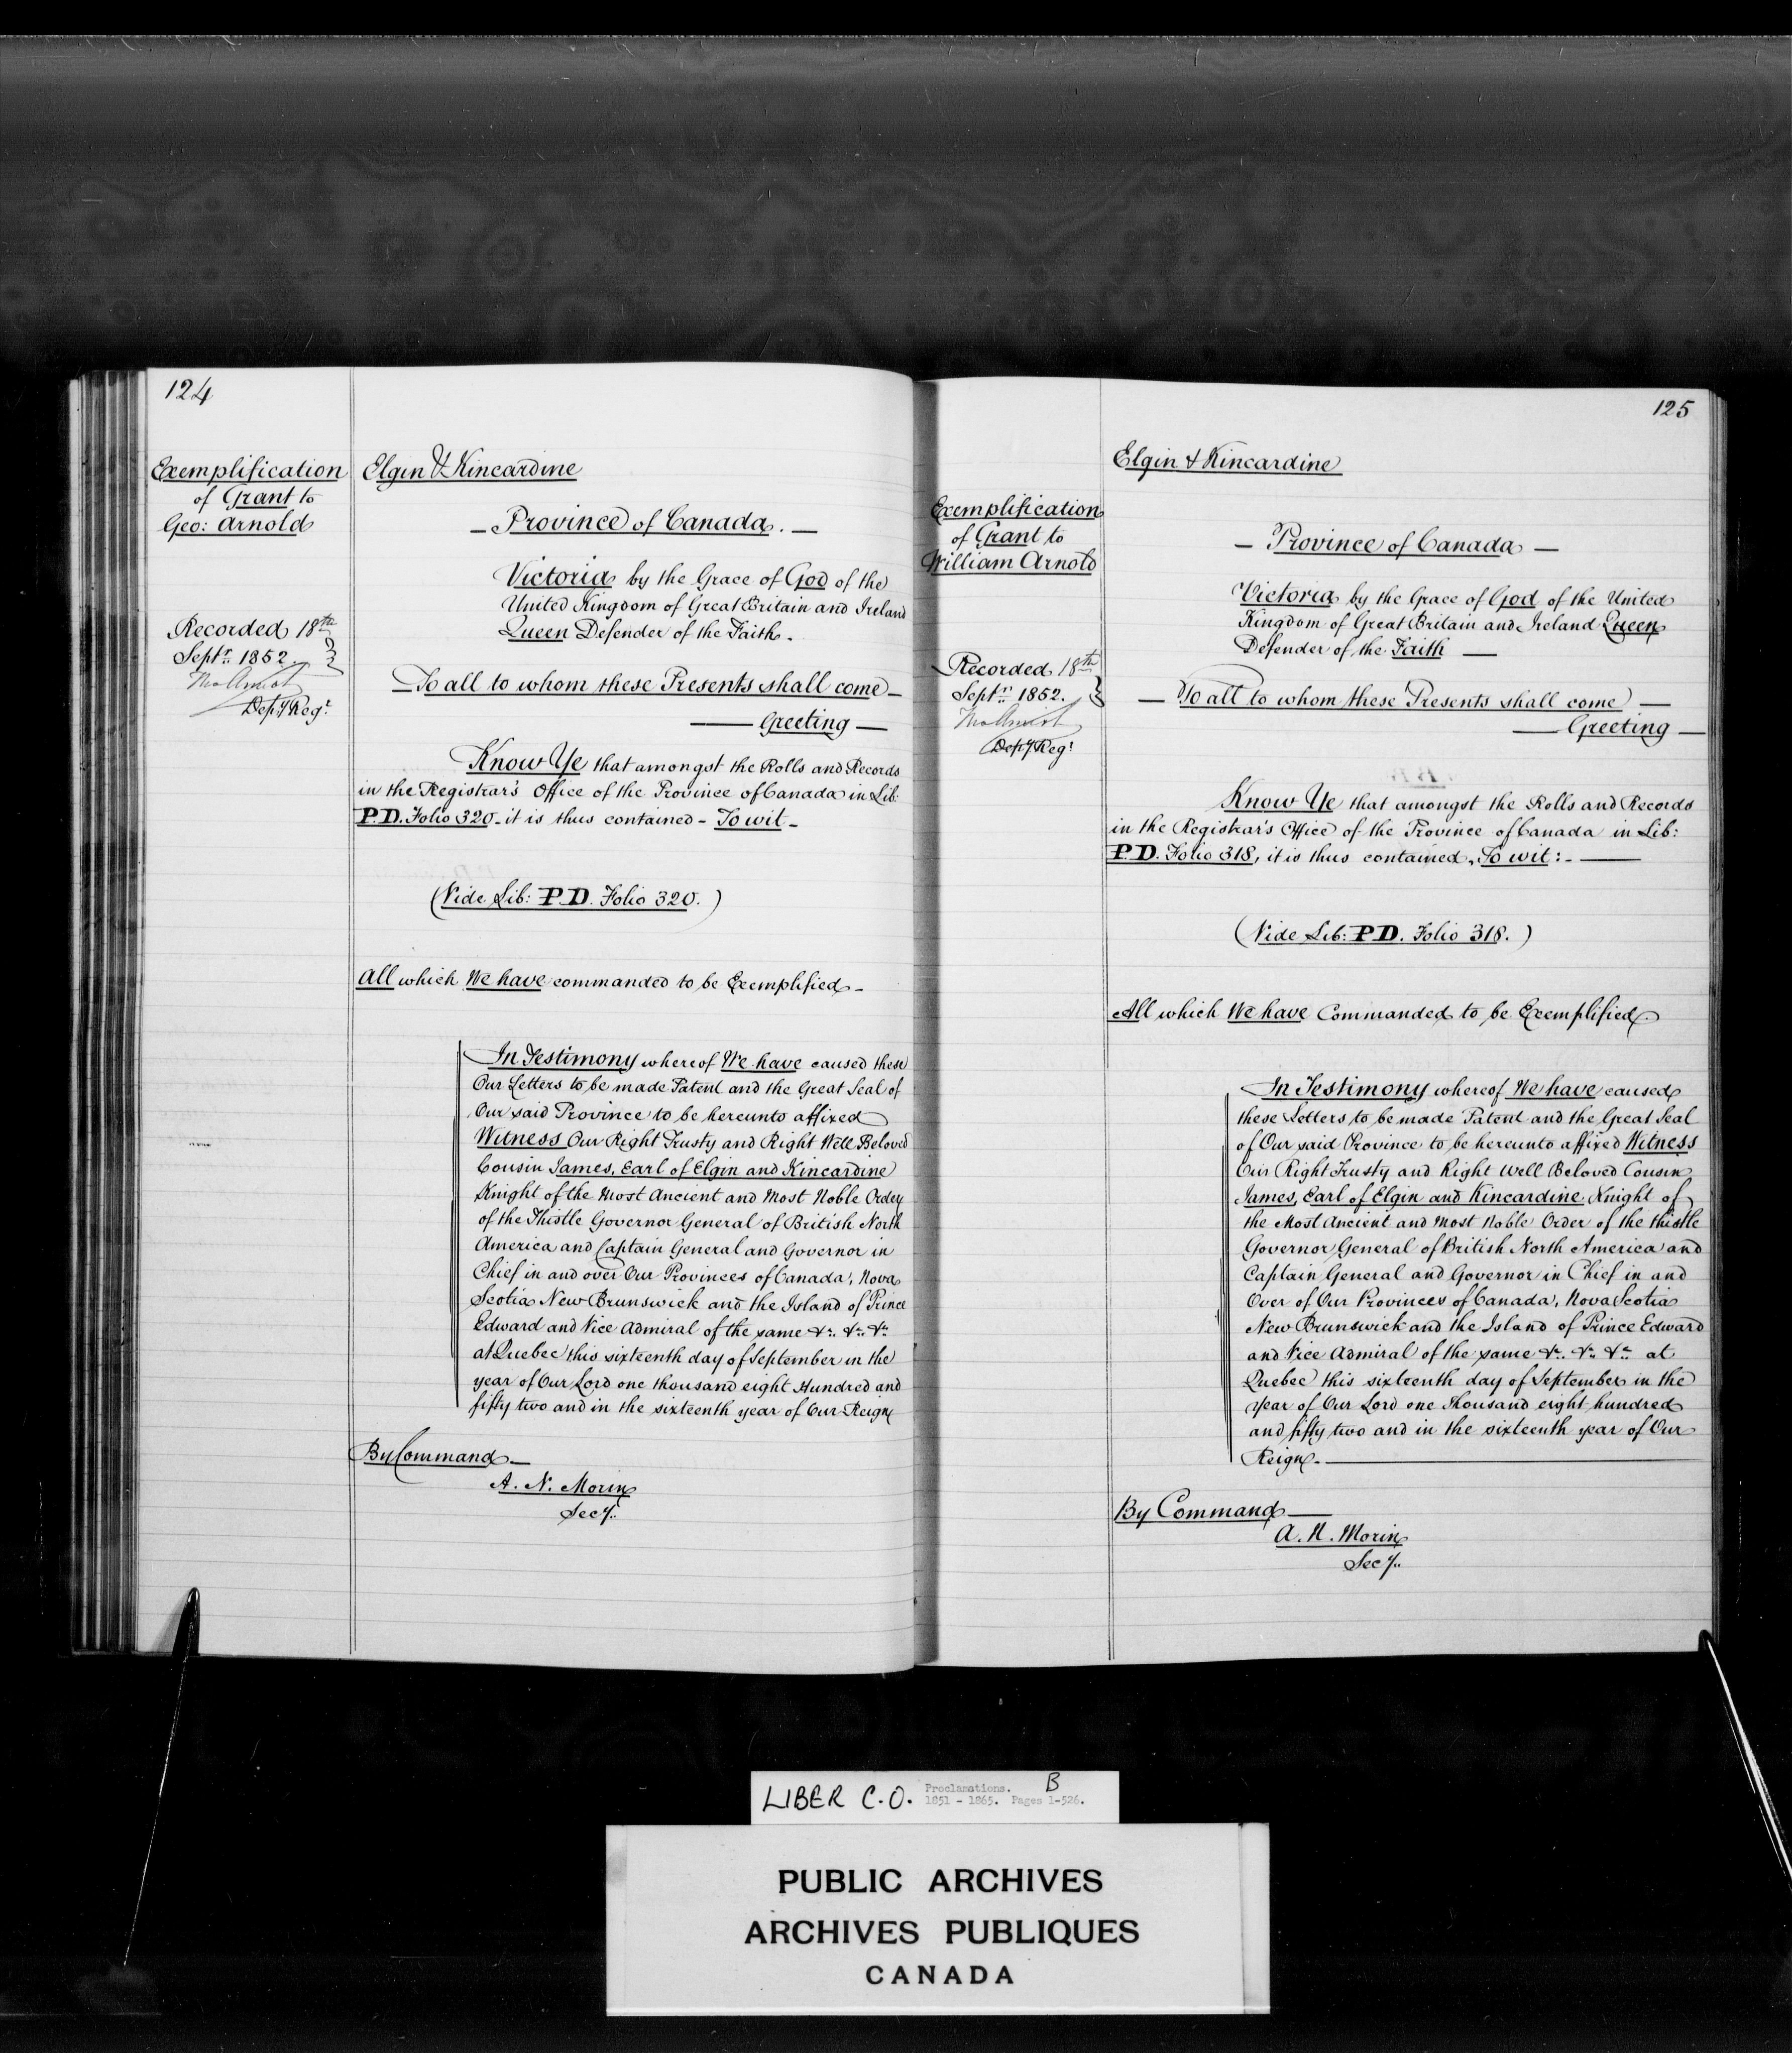 124
Exemplification
of Grant to
Geo: Arnold
Recorded 18th
Septr 1852.
Depy Regr
Elgin & Kincardine
— Province of Canada. —
Victoria by the Grace of God of the
United Kingdom of Great Britain and Ireland
Queen Defender of the Faith.
— To all to whom these Presents shall come —
— Greeting —
Know Ye that amongst the Rolls and Records
in the Registrar's Office of the Province of Canada in Lib:
P.D. Folio 320 - it is thus contained - To wit -
(Vide Lib: P.D. Folio 320.)
All which We have commanded to be Exemplified -
In Testimony whereof We have caused these
Our Letters to be made Patent and the Great Seal of
Our said Province to be hereunto affixed
Witness Our Right Trusty and Right Well Beloved
Cousin James, Earl of Elgin and Kincardine
Knight of the Most Ancient and Most Noble Order
of the Thistle Governor General of British North
America and Captain General and Governor in
Chief in and over Our Provinces of Canada, Nova
Scotia New Brunswick and the Island of Prince
Edward and Vice Admiral of the same &c. &c. &c.
at Quebec this sixteenth day of September in the
year of Our Lord one thousand eight Hundred and
fifty two and in the sixteenth year of Our Reign
By Command —
A. N. Morin
Secy.
125
Exemplification
of Grant to
William Arnold
Recorded 18th
Septr 1852.
Depy Regr
Elgin & Kincardine
— Province of Canada —
Victoria by the Grace of God of the United
Kingdom of Great Britain and Ireland Queen
Defender of the Faith —
— To all to whom these Presents shall come —
— Greeting —
Know Ye that amongst the Rolls and Records
in the Registrar's Office of the Province of Canada in Lib:
P.D. Folio 318, it is thus contained, To wit: -
(Vide Lib: P.D. Folio 318.)
All which We have Commanded to be Exemplified.
In Testimony whereof We have caused
these Letters to be made Patent and the Great Seal
of Our said Province to be hereunto affixed Witness
Our Right Trusty and Right Well Beloved Cousin
James, Earl of Elgin and Kincardine Knight of
the Most Ancient and Most Noble Order of the thistle
Governor General of British North America and
Captain General and Governor in Chief in and
Over of Our Provinces of Canada, Nova Scotia
New Brunswick and the Island of Prince Edward
and Vice Admiral of the same &c. &c. &c. at
Quebec this sixteenth day of September in the
year of Our Lord one thousand eight hundred
and fifty two and in the sixteenth year of Our
Reign. —
By Command —
A. N. Morin
Secy.
LIBER C.O. Proclamations. B
1851 - 1865. Pages 1-526.
PUBLIC ARCHIVES
ARCHIVES PUBLIQUES
CANADA